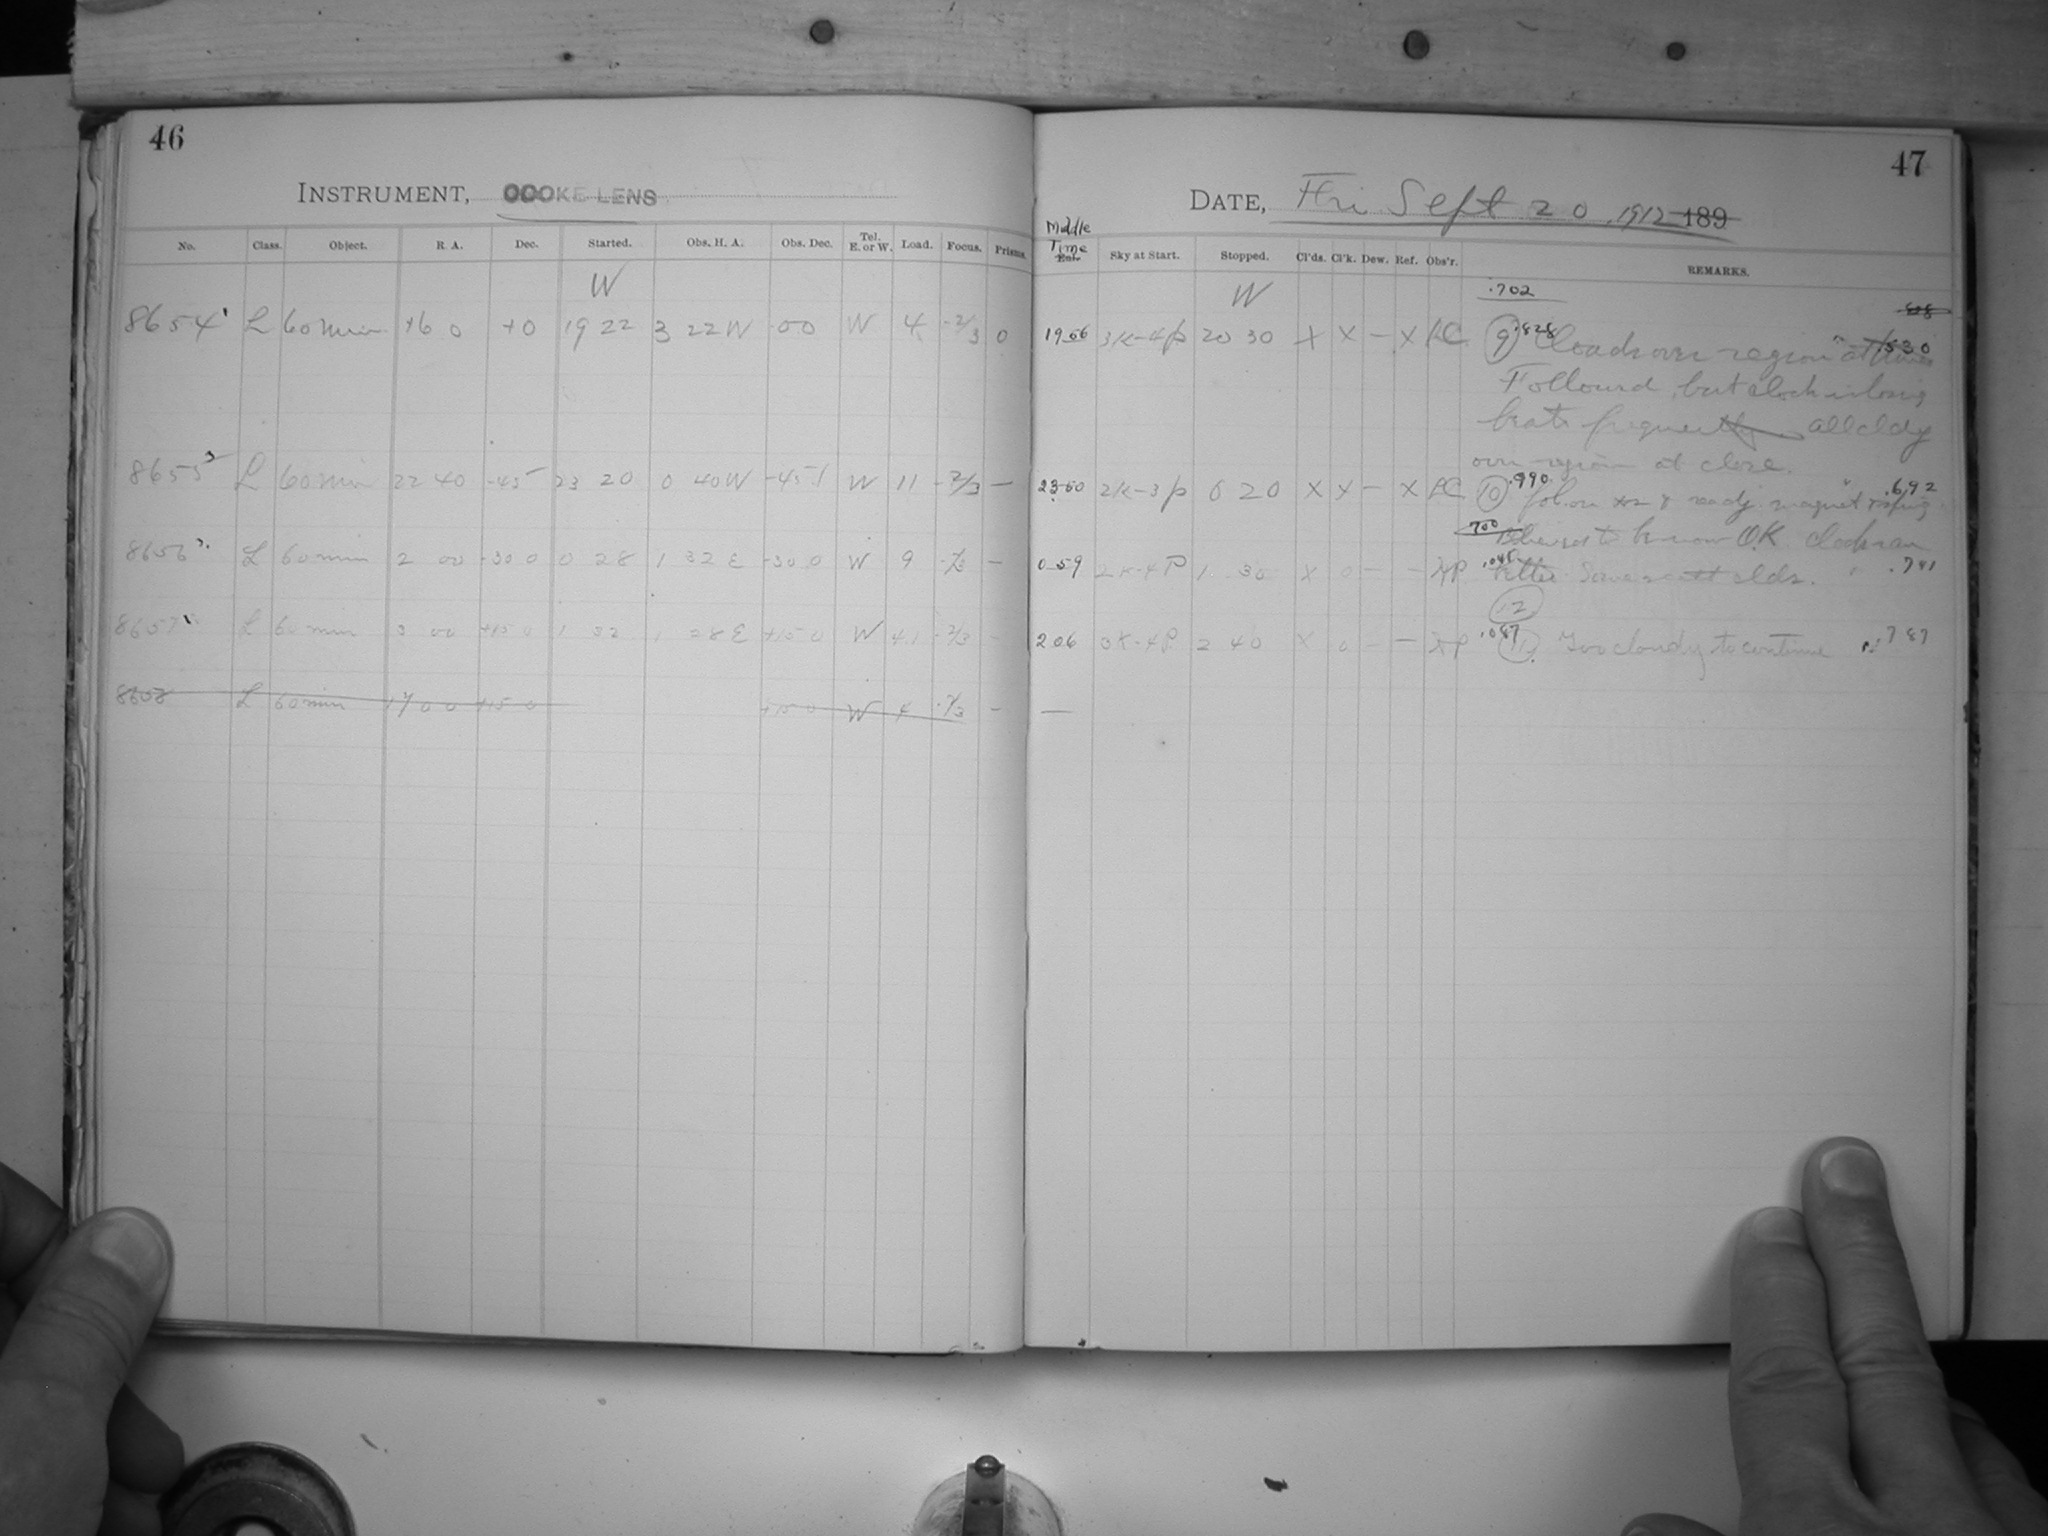 46
INSTRUMENT, COOKE LENS
No. Class. Object. R. A. Dec. Started. Obs. H. A. Obs. Dec. Tel. E. or W. Load. Focus. Prisms.
W
8654 L 60 min 0 +0 19 22 3 22 W 00 W 4 -2/3 0
8655 L 60 min 22 40 -45 23 20 0 40 W -45 W 11 -2/3 —
8656 L 60 min 2 00 -30 0 0 28 1 32 E -30 0 W 9 -2/3 —
8657 L 60 min 3 00 +15 0 1 32 1 28 E +15 0 W 41 -2/3 -
8658 L 60 min 0 0 +15 0 +15 0 W 4 -2/3 -
47
DATE, Fri Sept 20, 1912 189
Middle
Time
Sky at Start. Stopped. Cl'ds. Cl'k. Dew. Ref. Obs'r. REMARKS.
W .702
1956 3K-4p 20 30 X X — X LC 9 .828 Clouds over region at times .530
Followed, but clock is losing
beats frequently all cldy
over region at close.
2350 2K-3p 0 20 X X — X LC 10 .990 .692
.700 OK
059 2K-4P 1 30 X 0 — — .741
12
206 3K-4P 2 40 X 0 — — .087 11 Too cloudy to continue .787
—